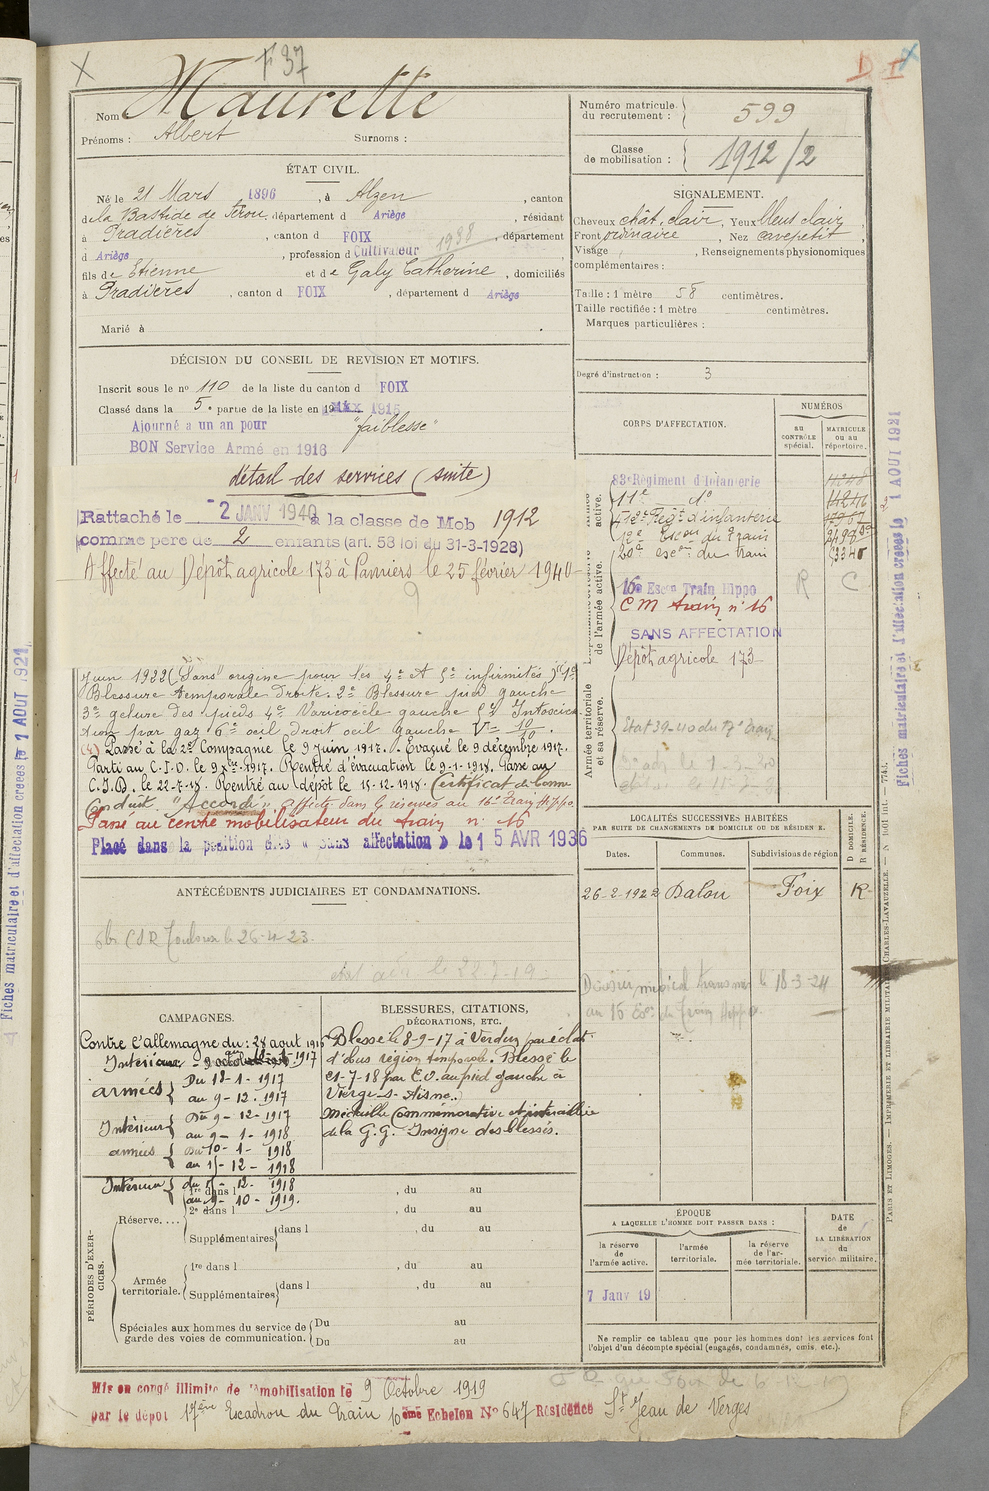 F 37
D I
Nom Maurette
Prénoms : Albert Surnoms :
Numéro matricule du recrutement : 599
Classe de mobilisation : 1912/2
ÉTAT CIVIL.
Né le 21 Mars 1896, à Alzen, canton
de la Bastide de Sérou, département d Ariège, résidant
à Pradières, canton d FOIX, département
d Ariège, profession d Cultivateur
fils de Etienne et de Galy Catherine, domiciliés
à Pradières, canton d FOIX, département d Ariège
Marié à
SIGNALEMENT.
Cheveux chât. clair, Yeux bleus clair,
Front ordinaire, Nez cave petit,
Visage , Renseignements physionomiques
complémentaires :
Taille : 1 mètre 58 centimètres.
Taille rectifiée : 1 mètre centimètres.
Marques particulières :
Degré d'instruction : 3
DÉCISION DU CONSEIL DE REVISION ET MOTIFS.
Inscrit sous le no 110 de la liste du canton d FOIX
Classé dans la 5e partie de la liste en 1915
Ajourné a un an pour "faiblesse"
BON Service Armé en 1916
détail des services (suite)
Rattaché le 2 JANV 1940 à la classe de Mob 1912
comme père de 2 enfants (art. 58 loi du 31-3-1928)
Affecté au Dépôt agricole 173 à Pamiers le 25 février 1940
juin 1922 (Sans origine pour les 4e et 5e infirmités) 1e
Blessure temporale droite. 2e Blessure pied gauche
3e gelure des pieds 4e Varicocèle gauche 5e Intoxica
tion par gaz 6e oeil droit oeil gauche V = 10/10.
(4) Passé à la 2e Compagnie le 9 juin 1917. Evaqué le 9 décembre 1917.
Parti au C.I.D. le 9 xbre 1917. Rentré d'évacuation le 9-1-1918. Passé au
C.I.D. le 22-7-18. Rentré au dépôt le 15-12-1918. Certificat de bonne
conduite "Accordé". Affecté dans la réserve au 16e Train Hippo.
Passé au centre mobilisateur du train n° 16
Placé dans la position dite « sans affectation » le 15 AVR 1936
CORPS D'AFFECTATION.
NUMÉROS
AU CONTRÔLE spécial.
MATRICULE ou au répertoire.
83e Régiment d'Infanterie
11e
412e Régt d'infanterie
12e Escon du Train
20e escon du train
16e Escon Train Hippo R C
C M train n° 16
SANS AFFECTATION
Dépôt agricole 173
de l'armée active.
Armée territoriale et sa réserve.
ANTÉCÉDENTS JUDICIAIRES ET CONDAMNATIONS.
LOCALITÉS SUCCESSIVES HABITÉES
PAR SUITE DE CHANGEMENTS DE DOMICILE OU DE RÉSIDENCE.
D DOMICILE. R RÉSIDENCE.
Dates. Communes. Subdivisions de région
26-2-1922 Dalou Foix R
Dossier médical transmis le 18-3-24
au 16 Esc. du Train Hippo
CAMPAGNES.
Contre l'Allemagne du : 28 aout 1915
Intérieur
armées { Du 12-1-1917
au 9-12-1917
Intérieur { Du 9-12-1917
au 9-1-1918
armées { Du 10-1-1918
au 15-12-1918
Intérieur { du 15-12-1918
au 9-10-1919.
BLESSURES, CITATIONS,
DÉCORATIONS, ETC.
Blessé le 8-9-17 à Verdun par éclat
d'obus région temporale. Blessé le
21-7-18 par E.O. au pied gauche à
Vierge-s-Aisne.
Médaille Commémorative et interalliée
de la G.G. Insigne des blessés.
PÉRIODES D'EXERCICES.
Réserve....
1re dans l , du au
2e dans l , du au
Supplémentaires dans l , du au
Armée territoriale.
1re dans l , du au
Supplémentaires dans l , du au
Spéciales aux hommes du service de garde des voies de communication.
Du au
Du au
ÉPOQUE
A LAQUELLE L'HOMME DOIT PASSER DANS :
la réserve de l'armée active.
l'armée territoriale.
la réserve de l'armée territoriale.
DATE de LA LIBÉRATION du service militaire.
7 Janv 19
Ne remplir ce tableau que pour les hommes dont les services font
l'objet d'un décompte spécial (engagés, condamnés, omis, etc.).
Mis en congé illimité de démobilisation le 9 Octobre 1919
par le dépôt 17ème Escadron du Train 10ème Echelon No 647 Résidence St Jean de Verges
Fiches matriculaire et d'affectation créées le 1 AOUT 1921
Fiches matriculaire et d'affectation créées le 1 AOUT 1921
PARIS ET LIMOGES. — IMPRIMERIE ET LIBRAIRIE MILITAIRES CHARLES-LAVAUZELLE.